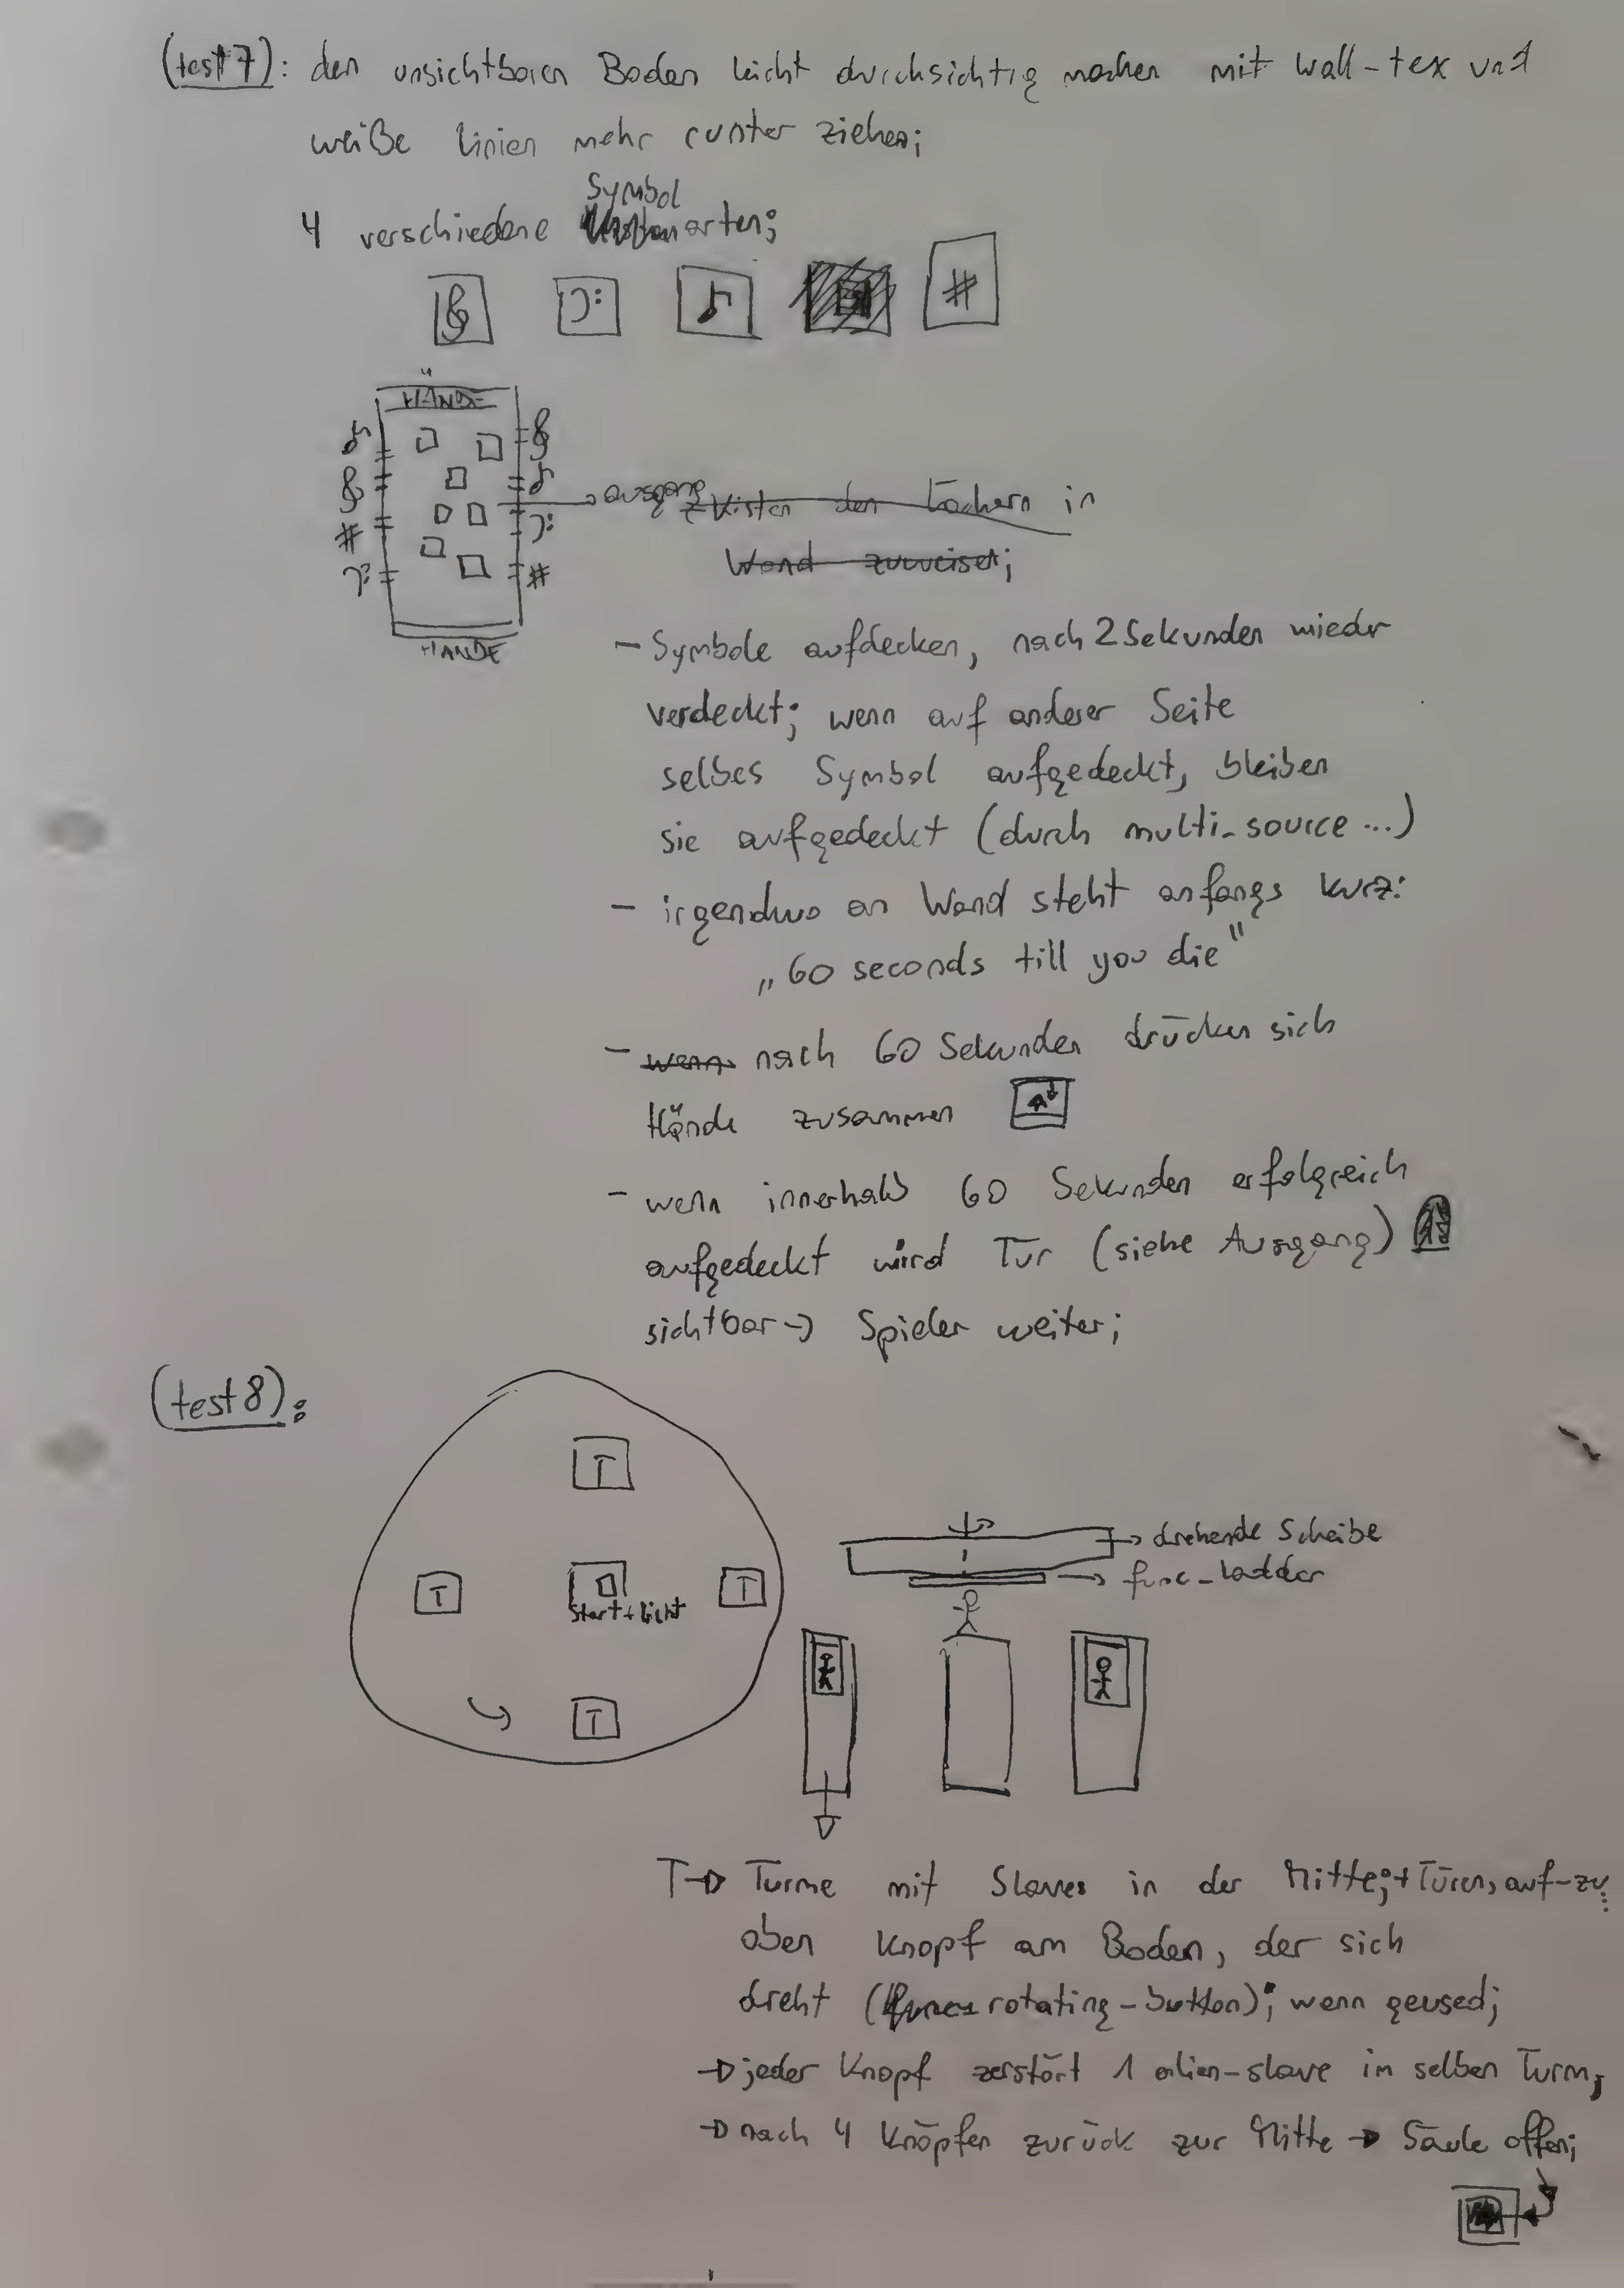 (test 7): den unsichtbaren Boden leicht durchsichtig machen mit Wall-tex und
weiße Linien mehr runter ziehen;
Symbol
4 verschiedene arten;
#
HÄNDE
ausgang
Kisten den Löchern in
Wand zuweisen;
#
#
HÄNDE
- Symbole aufdecken, nach 2 Sekunden wieder
verdeckt; wenn auf anderer Seite
selbes Symbol aufgedeckt, bleiben
sie aufgedeckt (durch multi_source ...)
- irgendwo an Wand steht anfangs kurz:
„60 seconds till you die"
- wenn nach 60 Sekunden drücken sich
Hände zusammen
- wenn innerhalb 60 Sekunden erfolgreich
aufgedeckt wird Tür (siehe Ausgang)
sichtbar → Spieler weiter;
(test 8):
T
→ drehende Scheibe
→ func_ladder
T
T
Start + Licht
T
T → Türme mit Slaves in der Mitte; + Türen, auf-zu
oben Knopf am Boden, der sich
dreht (func_rotating-button); wenn geused;
→ jeder Knopf zerstört 1 alien-slave im selben Turm;
→ nach 4 Knöpfen zurück zur Mitte → Säule offen;